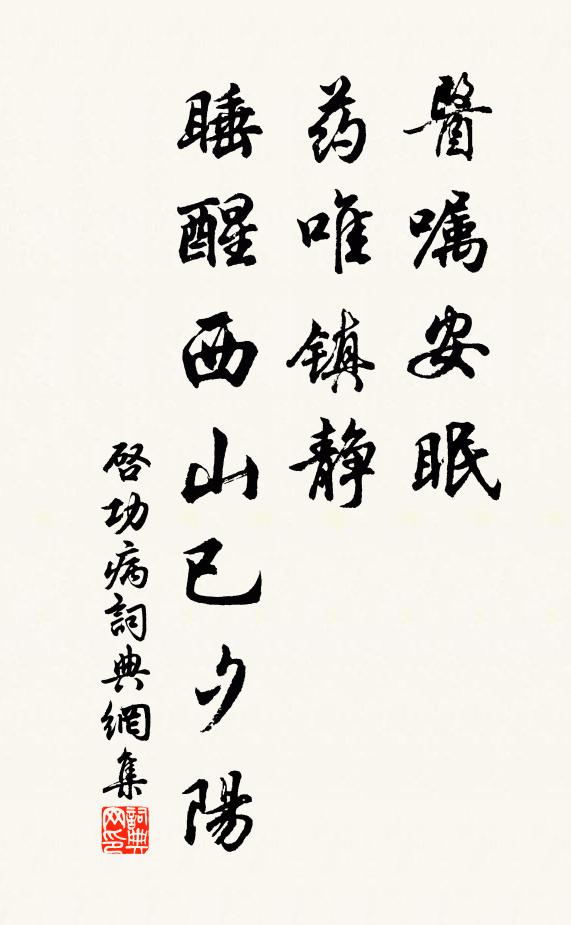 醫嘱安眠
药唯镇静
睡醒西山已夕陽
啓功病詞典網集
詞典网印